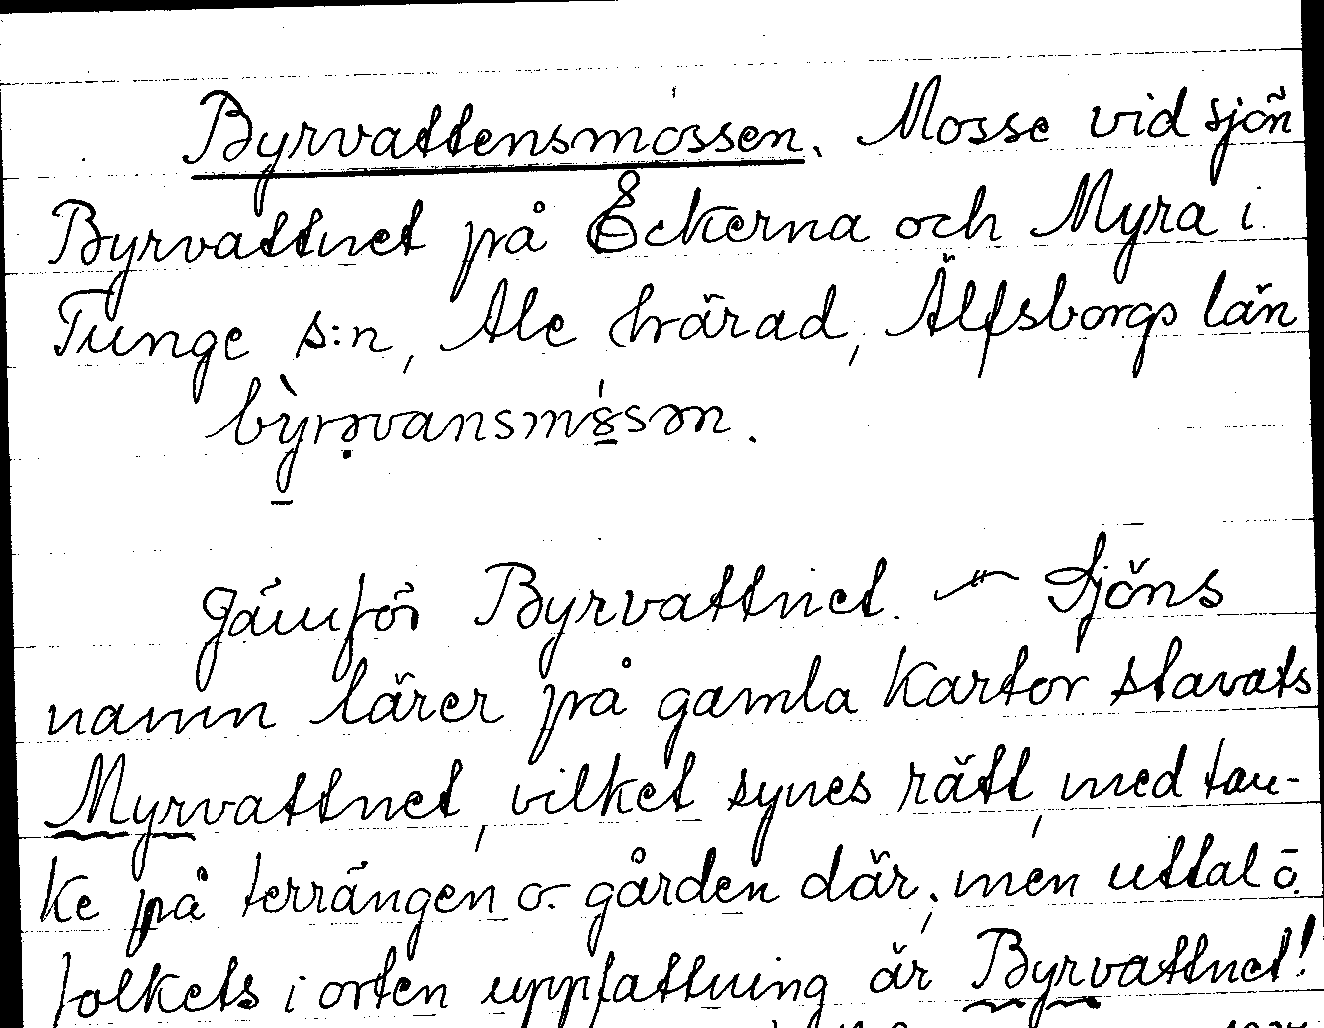 Byrvattensmossen. Mosse vid sjön
Byrvattnet på Eckerna och Myra i
Tunge s:n, Ale härad, Älfsborgs län
Jämför Byrvattnet. — Sjöns
namn lärer på gamla kartor stavats
Myrvattnet, vilket synes rätt, med tan-
ke på terrängen o. gården där; men uttal o.
folkets i orten uppfattning är Byrvattnet!